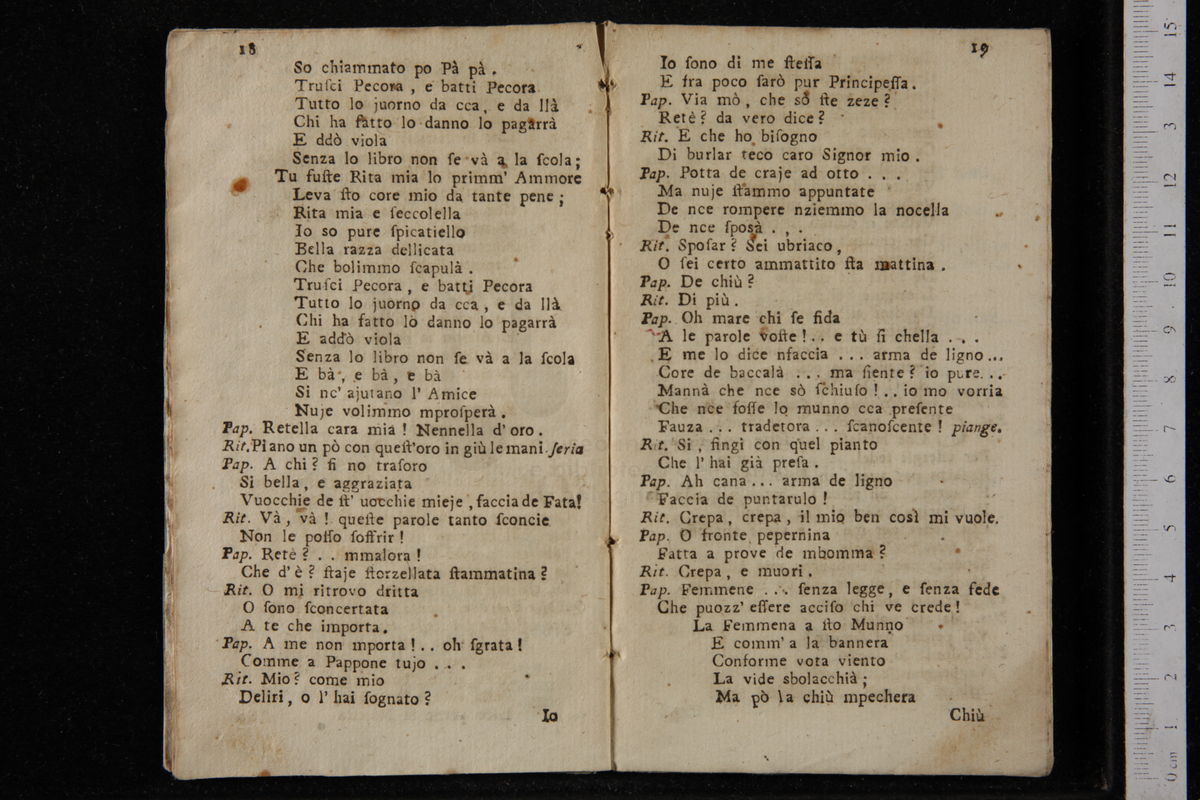 18
So chiammato po Pà pà.
Truſci Pecora, e batti Pecora
Tutto lo juorno da cca, e da llà
Chi ha fatto lo danno lo pagarrà
E ddò viola
Senza lo libro non ſe và a la ſcola;
Tu fuſte Rita mia lo primm' Ammore
Leva ſto core mio da tante pene;
Rita mia e ſeccolella
Io so pure ſpicatiello
Bella razza dellicata
Che bolimmo ſcapulà.
Truſci Pecora, e batti Pecora
Tutto lo juorno da cca, e da llà
Chi ha fatto lò danno lo pagarrà
E addò viola
Senza lo libro non ſe và a la ſcola
E bà, e bà, e bà
Si nc' ajutano l' Amice
Nuje volimmo mproſperà.
Pap. Retella cara mia! Nennella d' oro.
Rit. Piano un pò con queſt'oro in giù le mani. ſeria
Pap. A chi? ſi no traforo
Si bella, e aggraziata
Vuocchie de ſt' uocchie mieje, faccia de Fata!
Rit. Và, và! queſte parole tanto ſconcie
Non le poſſo ſoffrir!
Pap. Retè?.. mmalora!
Che d' è? ſtaje ſtorzellata ſtammatina?
Rit. O mi ritrovo dritta
O ſono ſconcertata
A te che importa.
Pap. A me non mporta!.. oh ſgrata!
Comme a Pappone tujo...
Rit. Mio? come mio
Deliri, o l' hai ſognato?
Io
19
Io ſono di me ſteſſa
E fra poco ſarò pur Principeſſa.
Pap. Via mò, che sò ſte zeze?
Retè? da vero dice?
Rit. E che ho biſogno
Di burlar teco caro Signor mio.
Pap. Potta de craje ad otto...
Ma nuje ſtammo appuntate
De nce rompere nziemmo la nocella
De nce ſposà...
Rit. Spoſar? Sei ubriaco,
O ſei certo ammattito ſta mattina.
Pap. De chiù?
Rit. Di più.
Pap. Oh mare chi ſe fida
A le parole voſte!.. e tù ſi chella...
E me lo dice nfaccia... arma de ligno...
Core de baccalà... ma ſiente? io pure...
Mannà che nce sò ſchiuſo!.. io mo vorria
Che nce foſſe lo munno cca preſente
Fauza... tradetora... ſcanoſcente! piange.
Rit. Si, fingi con quel pianto
Che l' hai già preſa.
Pap. Ah cana... arma de ligno
Faccia de puntarulo!
Rit. Crepa, crepa, il mio ben così mi vuole.
Pap. O fronte pepernina
Fatta a prove de mbomma?
Rit. Crepa, e muori.
Pap. Femmene... ſenza legge, e ſenza fede
Che puozz' eſſere acciſo chi ve crede!
La Femmena a ſto Munno
E comm' a la bannera
Conforme vota viento
La vide sbolacchià;
Ma pò la chiù mpechera
Chiù